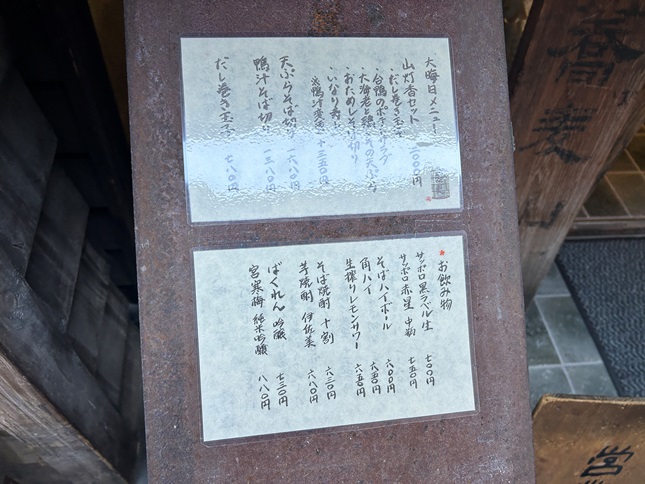 大晦日メニュー
山灯香セット 二〇〇〇円
・だし巻き玉子
・合鴨のポテトサラダ
・大海老と
・おためしそば切り
・いなり寿し
※鴨汁変更 十三五〇円
天ぷらそば切り 一六八〇円
鴨汁そば切り 一三八〇円
だし巻き玉子 七八〇円
★お飲み物
サッポロ黒ラベル生 七〇〇円
サッポロ赤星 中瓶 七五〇円
そばハイボール 六〇〇円
角ハイ 六五〇円
生搾りレモンサワー 六五〇円
そば焼酎 十割 六三〇円
芋焼酎 伊佐美 六八〇円
ばくれん 吟醸 七三〇円
宮寒梅 純米吟醸 八八〇円
蕎麦
営